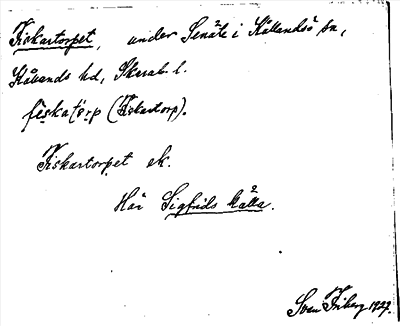 Fiskartorpet, under Senäte i Kållandsö sn,
Kållands hd, Skarab. l.
feskatörp (Fiskartorp).
Fiskartorpet ek.
Här Sigfrids källa.
Sven Friberg 1929.